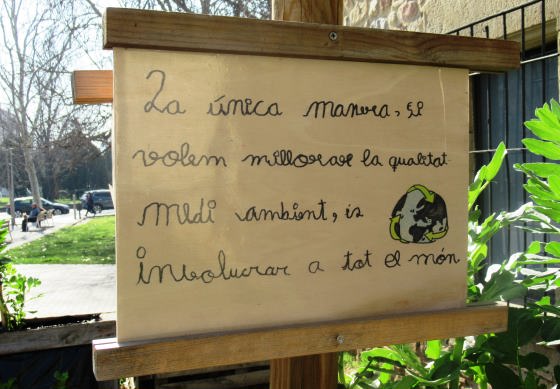 La única manera, si
volem millorar la qualitat
medi ambient, is
involucrar a tot el món